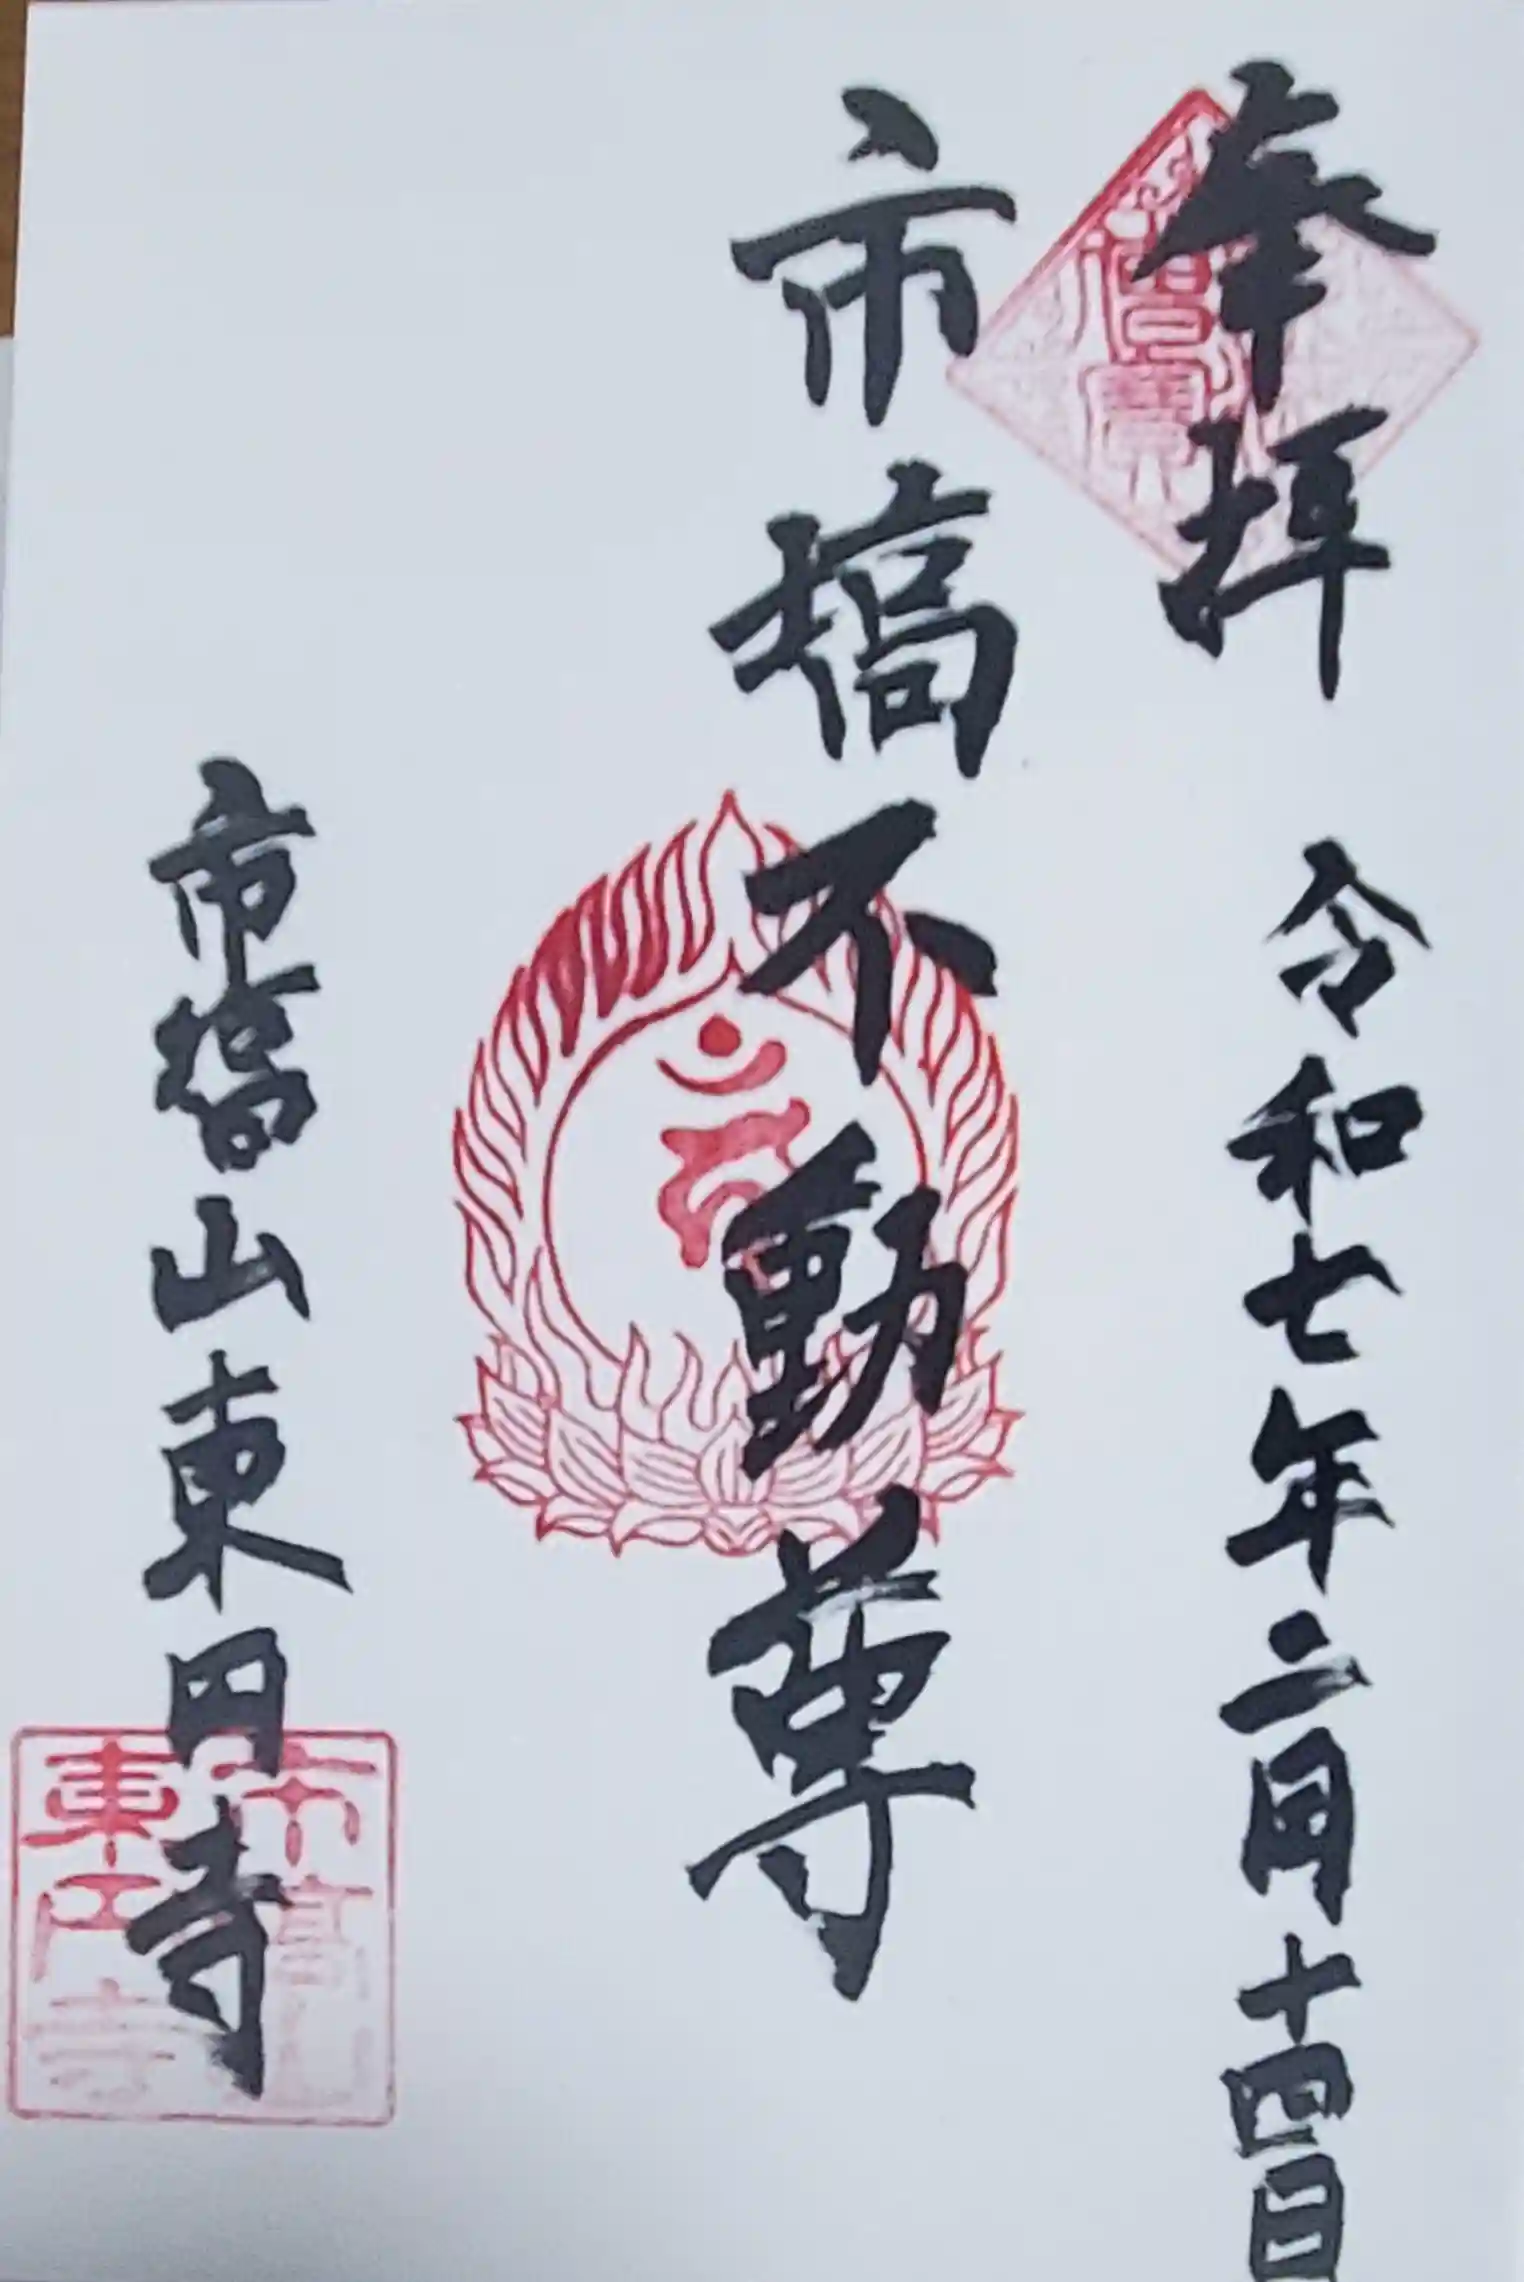 奉拝 令和七年二月十四日
市塙不動尊
市塙山東円寺
市塙山
東円寺